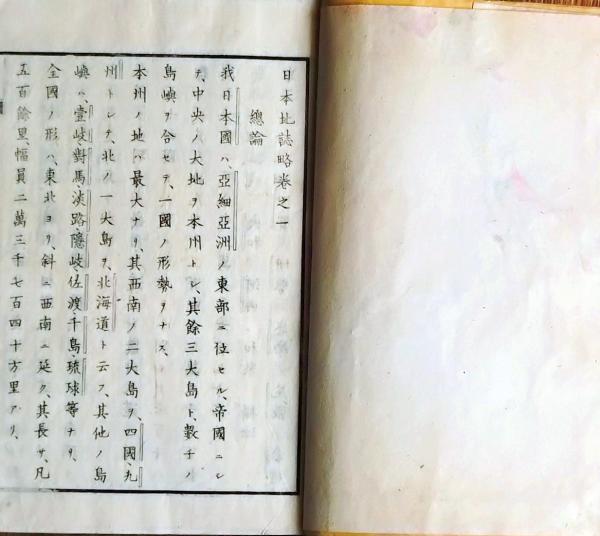 日本地誌略卷之一
總論
我日本國ハ、亞細亞洲ノ東部ニ位セル、帝國ニシ
テ、中央ノ大地ヲ本州トシ、其餘三大島ト、數千ノ
島嶼ヲ合セテ、一國ノ形勢ヲナス、
本州ノ地ハ最大ナリ、其西南ノ二大島ヲ、四國、九
州トシテ、北ノ一大島ヲ、北海道ト云フ、其他ノ島
嶼ハ、壹岐、對馬、淡路、隱岐、佐渡、千島、琉球等ナリ、
全國ノ形ハ、東北ヨリ、斜ニ西南ニ延ク、其長サ、凡
五百餘里、幅員二萬三千七百四十方里アリ、